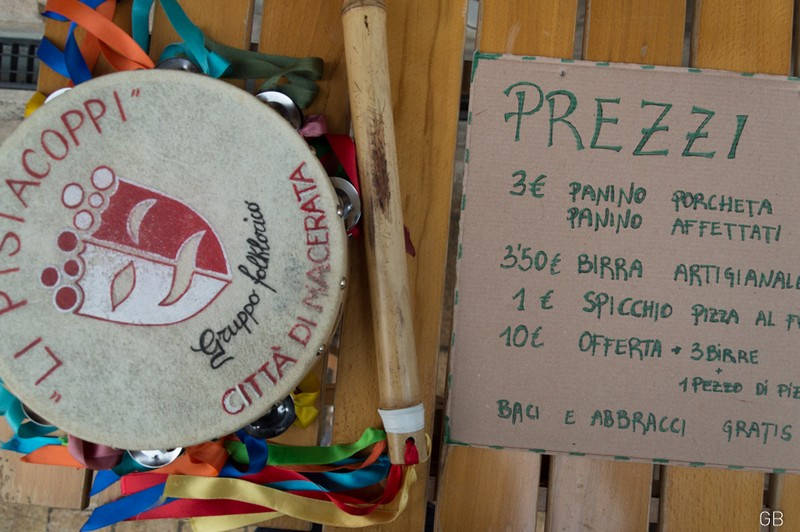 "LI PISTACOPPI"
Gruppo folklorico
CITTÀ DI MACERATA
PREZZI
3€ PANINO PORCHETA
PANINO AFFETTATI
3'50€ BIRRA ARTIGIANALE
1 € SPICCHIO PIZZA AL
10€ OFFERTA → 3 BIRRE
+
1 PEZZO DI
BACI E ABBRACCI GRATIS
GB